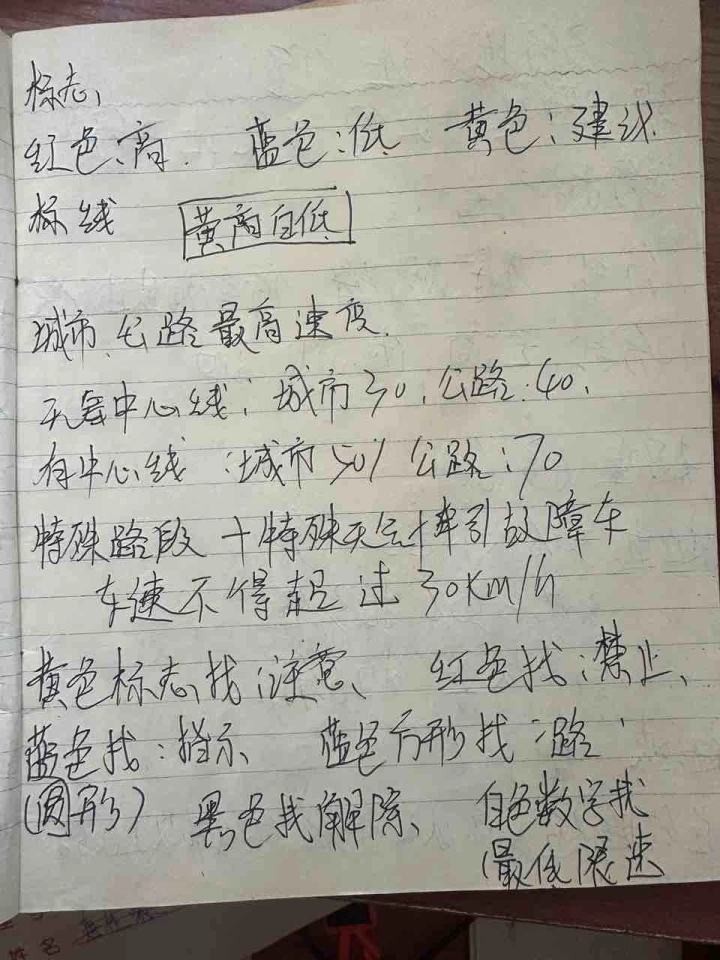 标志
红色:高. 蓝色:低 黄色:建议.
标线 黄高白低
城市、公路最高速度.
无中心线: 城市30. 公路:40.
有中心线:城市50/公路:70
特殊路段+特殊天气+牵引故障车
车速不得超过30Km/h
黄色标志找:注意、 红色找:禁止、
蓝色找:指示、 蓝色方形找:路
(圆形) 黑色找解除、 白色数字找
最低限速
姓名